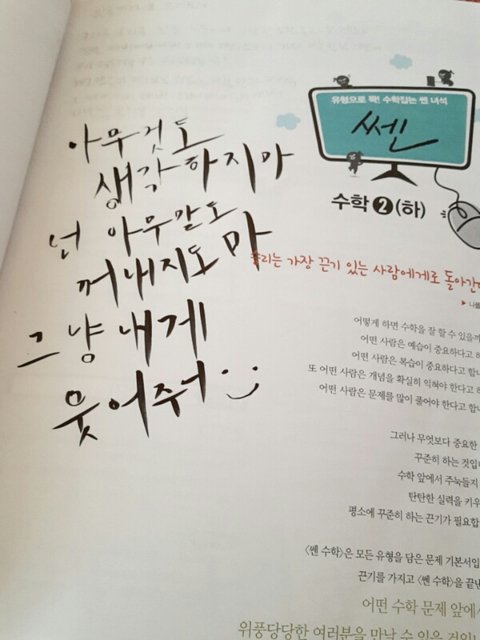 아무것도
생각하지마
넌 아무말도
꺼내지도 마
그냥 내게
웃어줘 :)
유형으로 꽉! 수학잡는 쎈 녀석
쎈
수학 2 (하)
리는 가장 끈기 있는 사람에게로 돌아간
▶ 나폴
어떻게 하면 수학을 잘 할 수 있을까
어떤 사람은 예습이 중요하다고 하
어떤 사람은 복습이 중요하다고 합니
또 어떤 사람은 개념을 확실히 익혀야 한다고 하
어떤 사람은 문제를 많이 풀어야 한다고 합니
그러나 무엇보다 중요한
꾸준히 하는 것입니
수학 앞에서 주눅들지
탄탄한 실력을 키우
평소에 꾸준히 하는 끈기가 필요합
<쎈 수학>은 모든 유형을 담은 문제 기본서입
끈기를 가지고 <쎈 수학>을 끝낸
어떤 수학 문제 앞에서
위풍당당한 여러분을 만날 수 있을 것입니